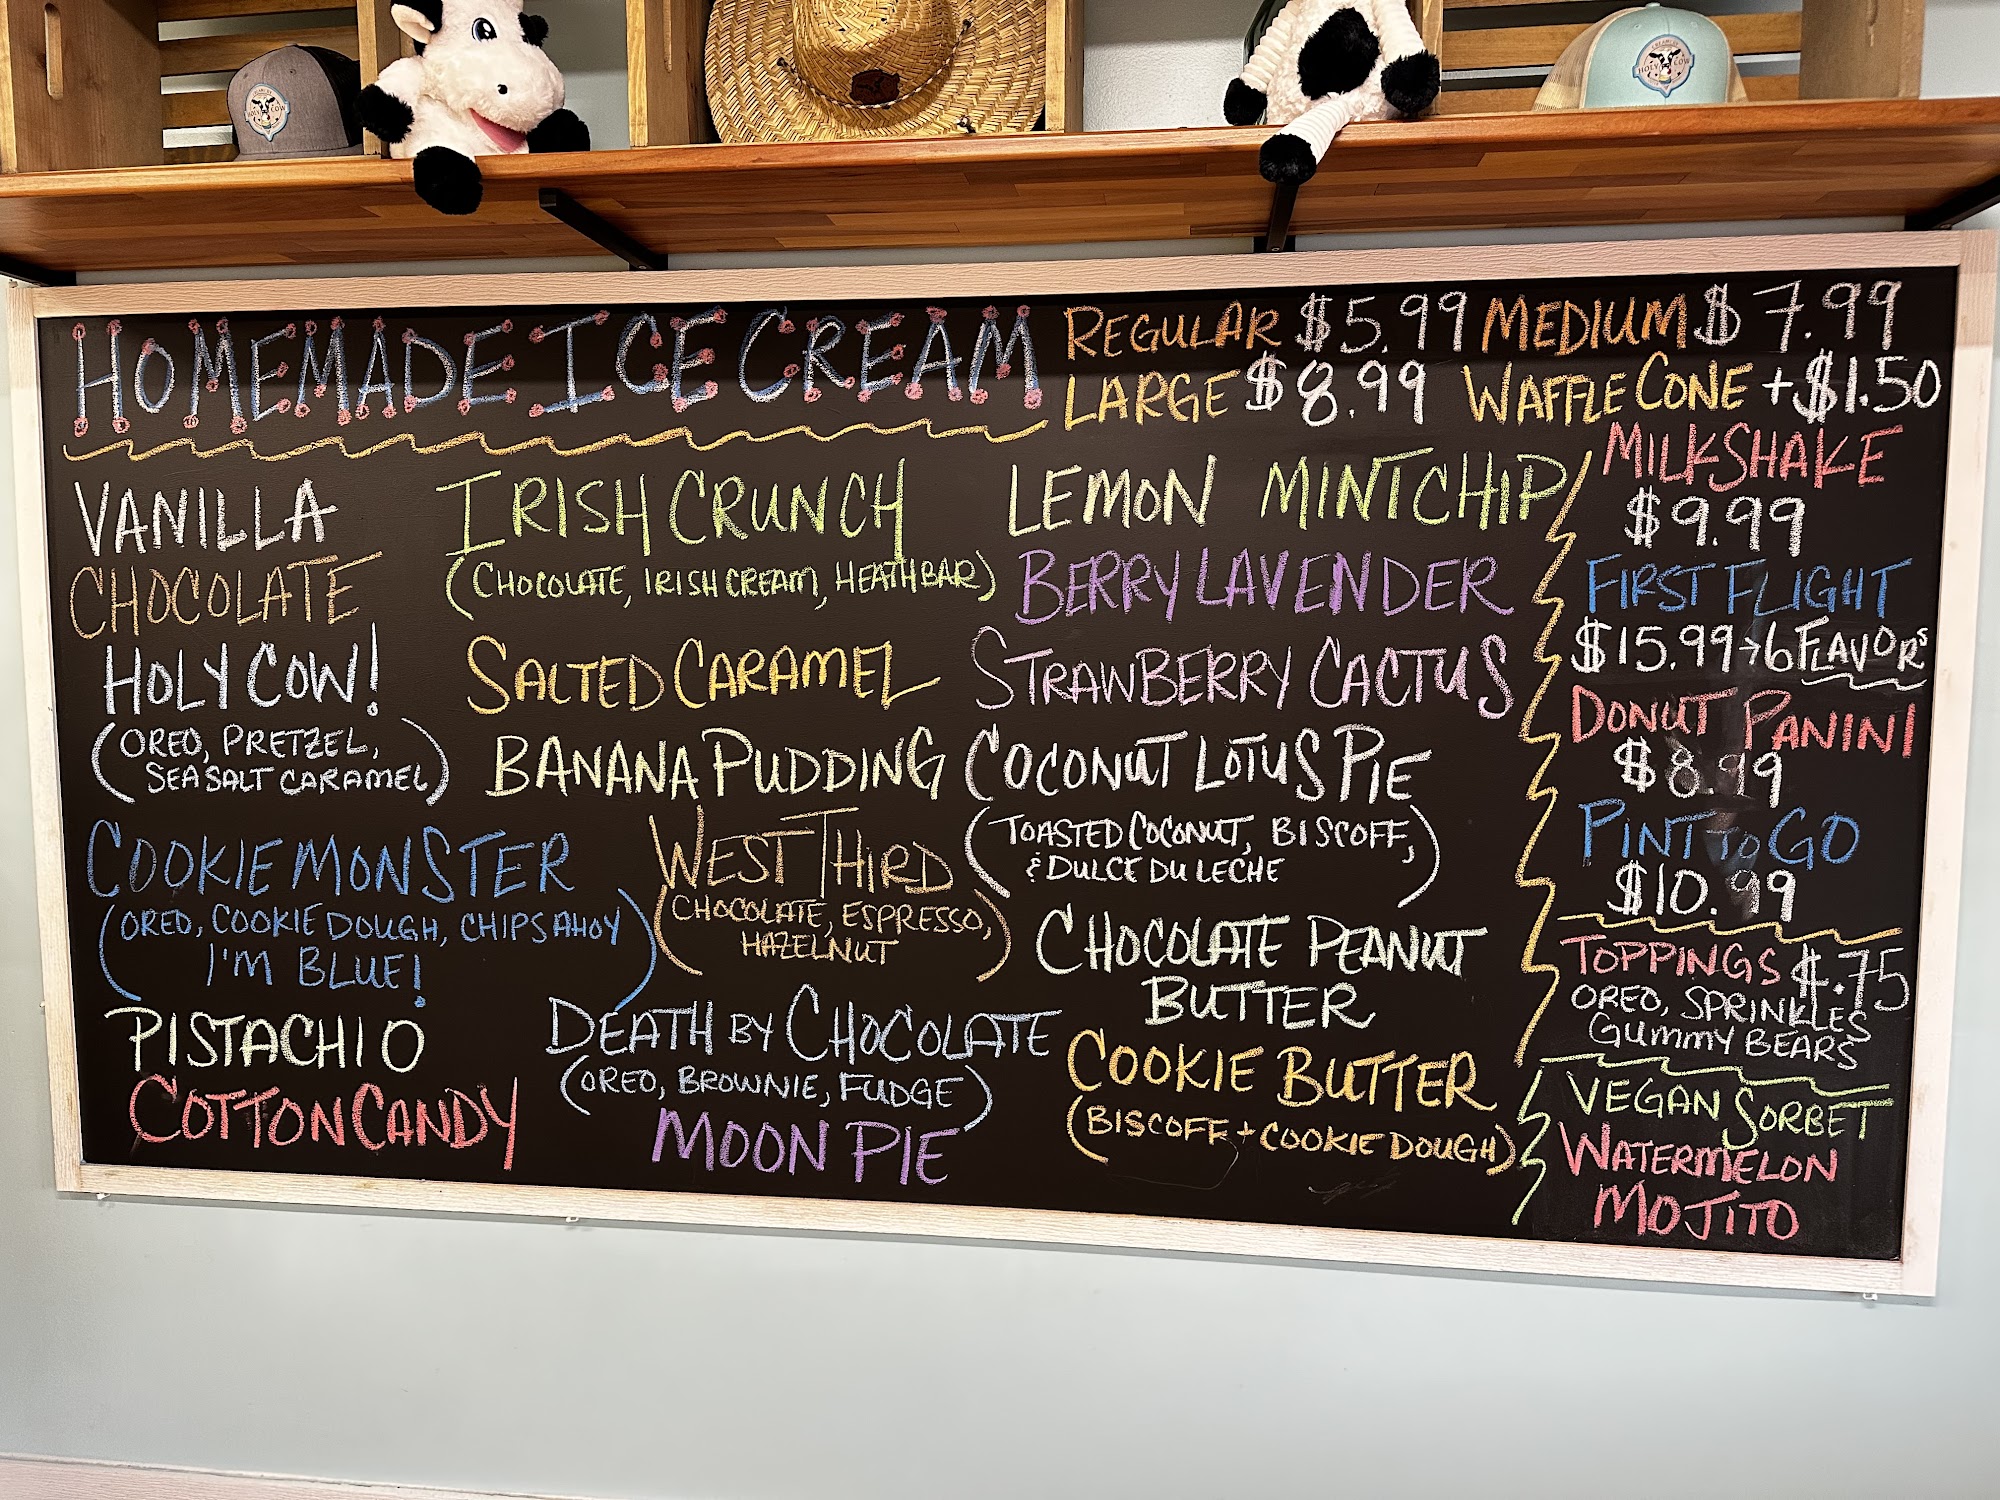 HOLY COW
HOLY COW
HOMEMADE ICE CREAM
REGULAR $5.99 MEDIUM $7.99
LARGE $8.99 WAFFLE CONE +$1.50
VANILLA
CHOCOLATE
HOLY COW!
(OREO, PRETZEL,
SEA SALT CARAMEL)
COOKIE MONSTER
(OREO, COOKIE DOUGH, CHIPS AHOY
I'M BLUE!)
PISTACHIO
COTTON CANDY
IRISH CRUNCH
(CHOCOLATE, IRISH CREAM, HEATH BAR)
SALTED CARAMEL
BANANA PUDDING
WEST THIRD
(CHOCOLATE, ESPRESSO,
HAZELNUT)
DEATH BY CHOCOLATE
(OREO, BROWNIE, FUDGE)
MOON PIE
LEMON MINT CHIP
BERRY LAVENDER
STRAWBERRY CACTUS
COCONUT LOTUS PIE
(TOASTED COCONUT, BISCOFF,
& DULCE DU LECHE)
CHOCOLATE PEANUT
BUTTER
COOKIE BUTTER
(BISCOFF + COOKIE DOUGH)
MILKSHAKE
$9.99
FIRST FLIGHT
$15.99→6 FLAVORS
DONUT PANINI
$8.99
PINT TO GO
$10.99
TOPPINGS $.75
OREO, SPRINKLES
GUMMY BEARS
VEGAN SORBET
WATERMELON
MOJITO